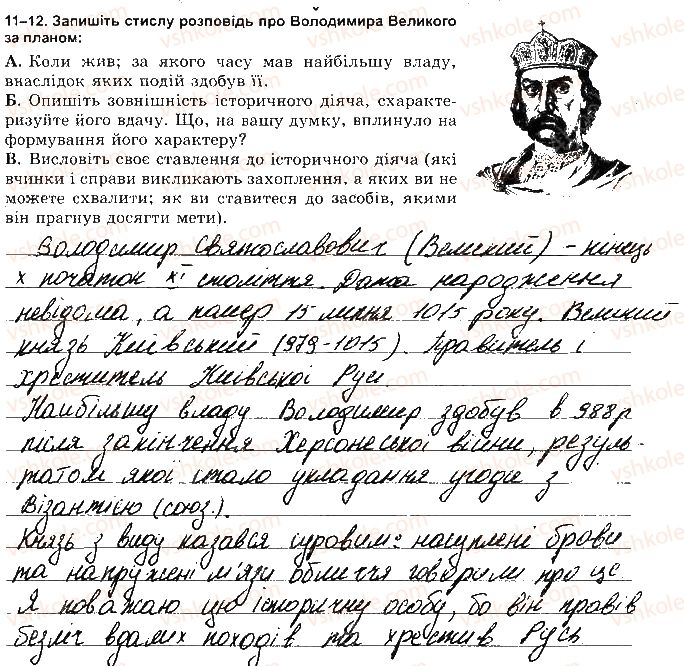 11–12. Запишіть стислу розповідь про Володимира Великого
за планом:
А. Коли жив; за якого часу мав найбільшу владу,
внаслідок яких подій здобув її.
Б. Опишіть зовнішність історичного діяча, схаракте-
ризуйте його вдачу. Що, на вашу думку, вплинуло на
формування його характеру?
В. Висловіть своє ставлення до історичного діяча (які
вчинки і справи викликають захоплення, а яких ви не
можете схвалити; як ви ставитеся до засобів, якими
він прагнув досягти мети).
Володимир Святославович (Великий) – кінець
X початок XI століття. Дата народження
невідома, а помер 15 липня 1015 року. Великий
князь Київський (979-1015). Правитель і
хреститель Київської Русі.
Найбільшу владу Володимир здобув в 988р
після закінчення Херсонеської війни, резуль-
татом якої стало укладання угоди з
Візантією (союз.).
Князь з виду казався суровим: насуплені брови
та напружені м'язи обличчя говорили про це
Я поважаю цю історичну особу, бо він провів
безліч вдалих походів та хрестив Русь
vshkole.com